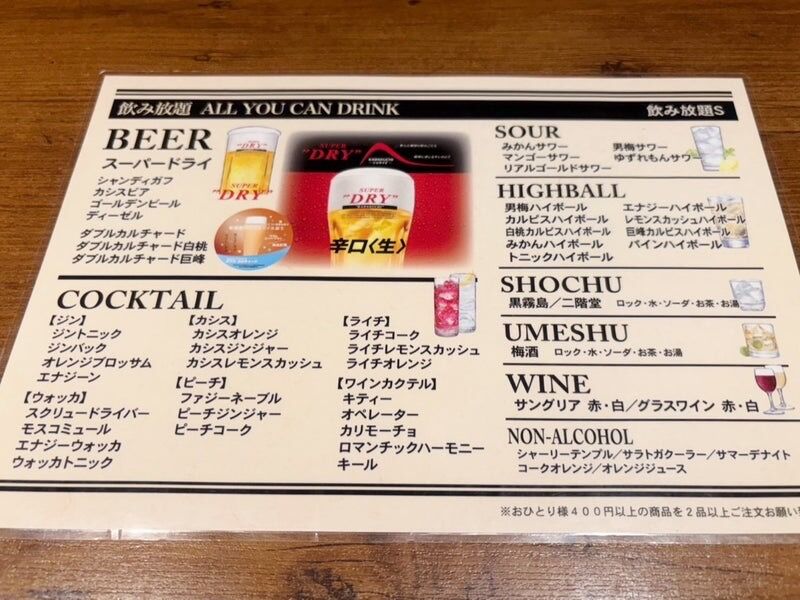 飲み放題 ALL YOU CAN DRINK 飲み放題S
BEER
スーパードライ
シャンディガフ
カシスビア
ゴールデンビール
ディーゼル
ダブルカルチャード
ダブルカルチャード白桃
ダブルカルチャード巨峰
"DRY"
SUPER
"DRY"
SUPER
"DRY"
辛口〈生〉
COCKTAIL
【ジン】
ジントニック
ジンバック
オレンジブロッサム
エナジーン
【ウォッカ】
スクリュードライバー
モスコミュール
エナジーウォッカ
ウォッカトニック
【カシス】
カシスオレンジ
カシスジンジャー
カシスレモンスカッシュ
【ピーチ】
ファジーネーブル
ピーチジンジャー
ピーチコーク
【ライチ】
ライチコーク
ライチレモンスカッシュ
ライチオレンジ
【ワインカクテル】
キティー
オペレーター
カリモーチョ
ロマンチックハーモニー
キール
SOUR
みかんサワー 男梅サワー
マンゴーサワー ゆずれもんサワー
リアルゴールドサワー
HIGHBALL
男梅ハイボール エナジーハイボール
カルピスハイボール レモンスカッシュハイボール
白桃カルピスハイボール 巨峰カルピスハイボール
みかんハイボール パインハイボール
トニックハイボール
SHOCHU
黒霧島／二階堂 ロック・水・ソーダ・お茶・お湯
UMESHU
梅酒 ロック・水・ソーダ・お茶・お湯
WINE
サングリア 赤・白／グラスワイン 赤・白
NON-ALCOHOL
シャーリーテンプル／サラトガクーラー／サマーデナイト
コークオレンジ／オレンジジュース
※おひとり様４００円以上の商品を２品以上ご注文お願い